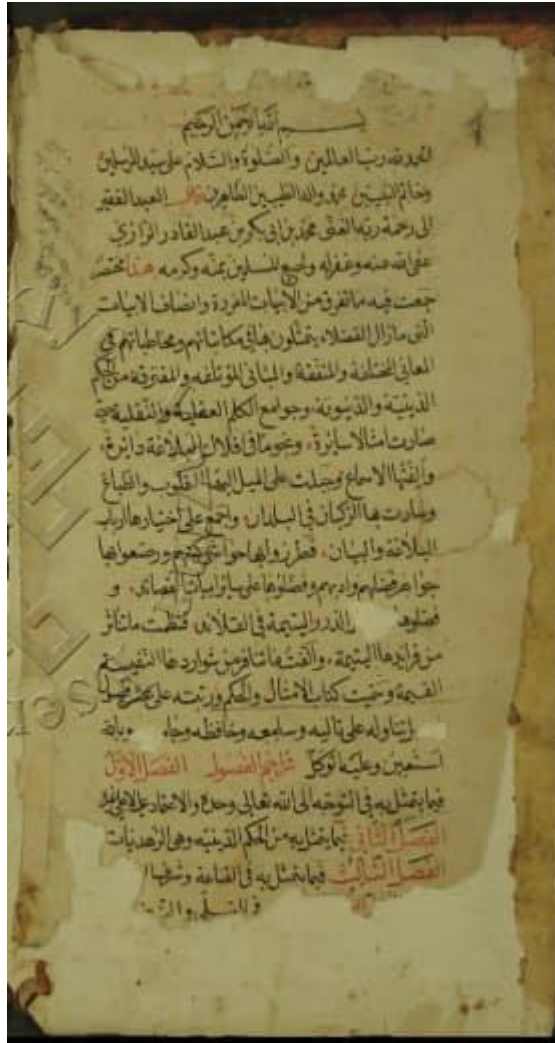 بسم الله الرحمن الرحيم
الحمد لله رب العالمين والصلوة والسلام على سيد المرسلين
وخاتم النبيين محمد واله الطيبين الطاهرين قال العبد الفقير
الى رحمة ربه الغنى محمد بن ابى بكر بن عبد القادر الرازي
عفى الله عنه وغفر له ولجميع المسلمين بمنه وكرمه هذا مختصر
جمعت فيه ما تفرق من الابيات المفردة وانصاف الابيات
التى مازال الفضلاء يتمثلون بها فى مكاتباتهم ومخاطباتهم فى
المعانى المختلفة والمتفقة والمبانى المؤتلفه والمفترقة من الحكم
الدينية والدنيوية وجوامع الكلم العقلية والنقلية
صارت امثالا سايرة ونجوما فى افلاك البلاغة دايرة
والفتها الاسماع وجبلت على الميل اليها القلوب والطباع
وسارت بها الركبان فى البلدان واجمع على اختيارها ارباب
البلاغة والبيان فطرزوا بها حواشى كتبهم ورصعوا بها
جواهر فضلهم وادبهم وفضلوها على ساير ابيات القصائد و
فضلوها الدر واليتيمة فى القلائد فنظمت ما تناثر
من فرايدها اليتيمة والفت ما تنافر من شواردها النفيسة
القيمة وسميت كتاب الامثال والحكم ورتبته على عشرة فصول
تناوله على تاليه وسامعه وحافظه وبالله
استعين وعليه اتوكل تراجم الفصول الفصل الاول
فيما يتمثل به فى التوجه الى الله تعالى وحده والاعتماد عليه
الفصل الثانى فيما يتمثل به من الحكم الدينية وهى الزهديات
الفصل الثالث فيما يتمثل به فى القناعة وشرفها